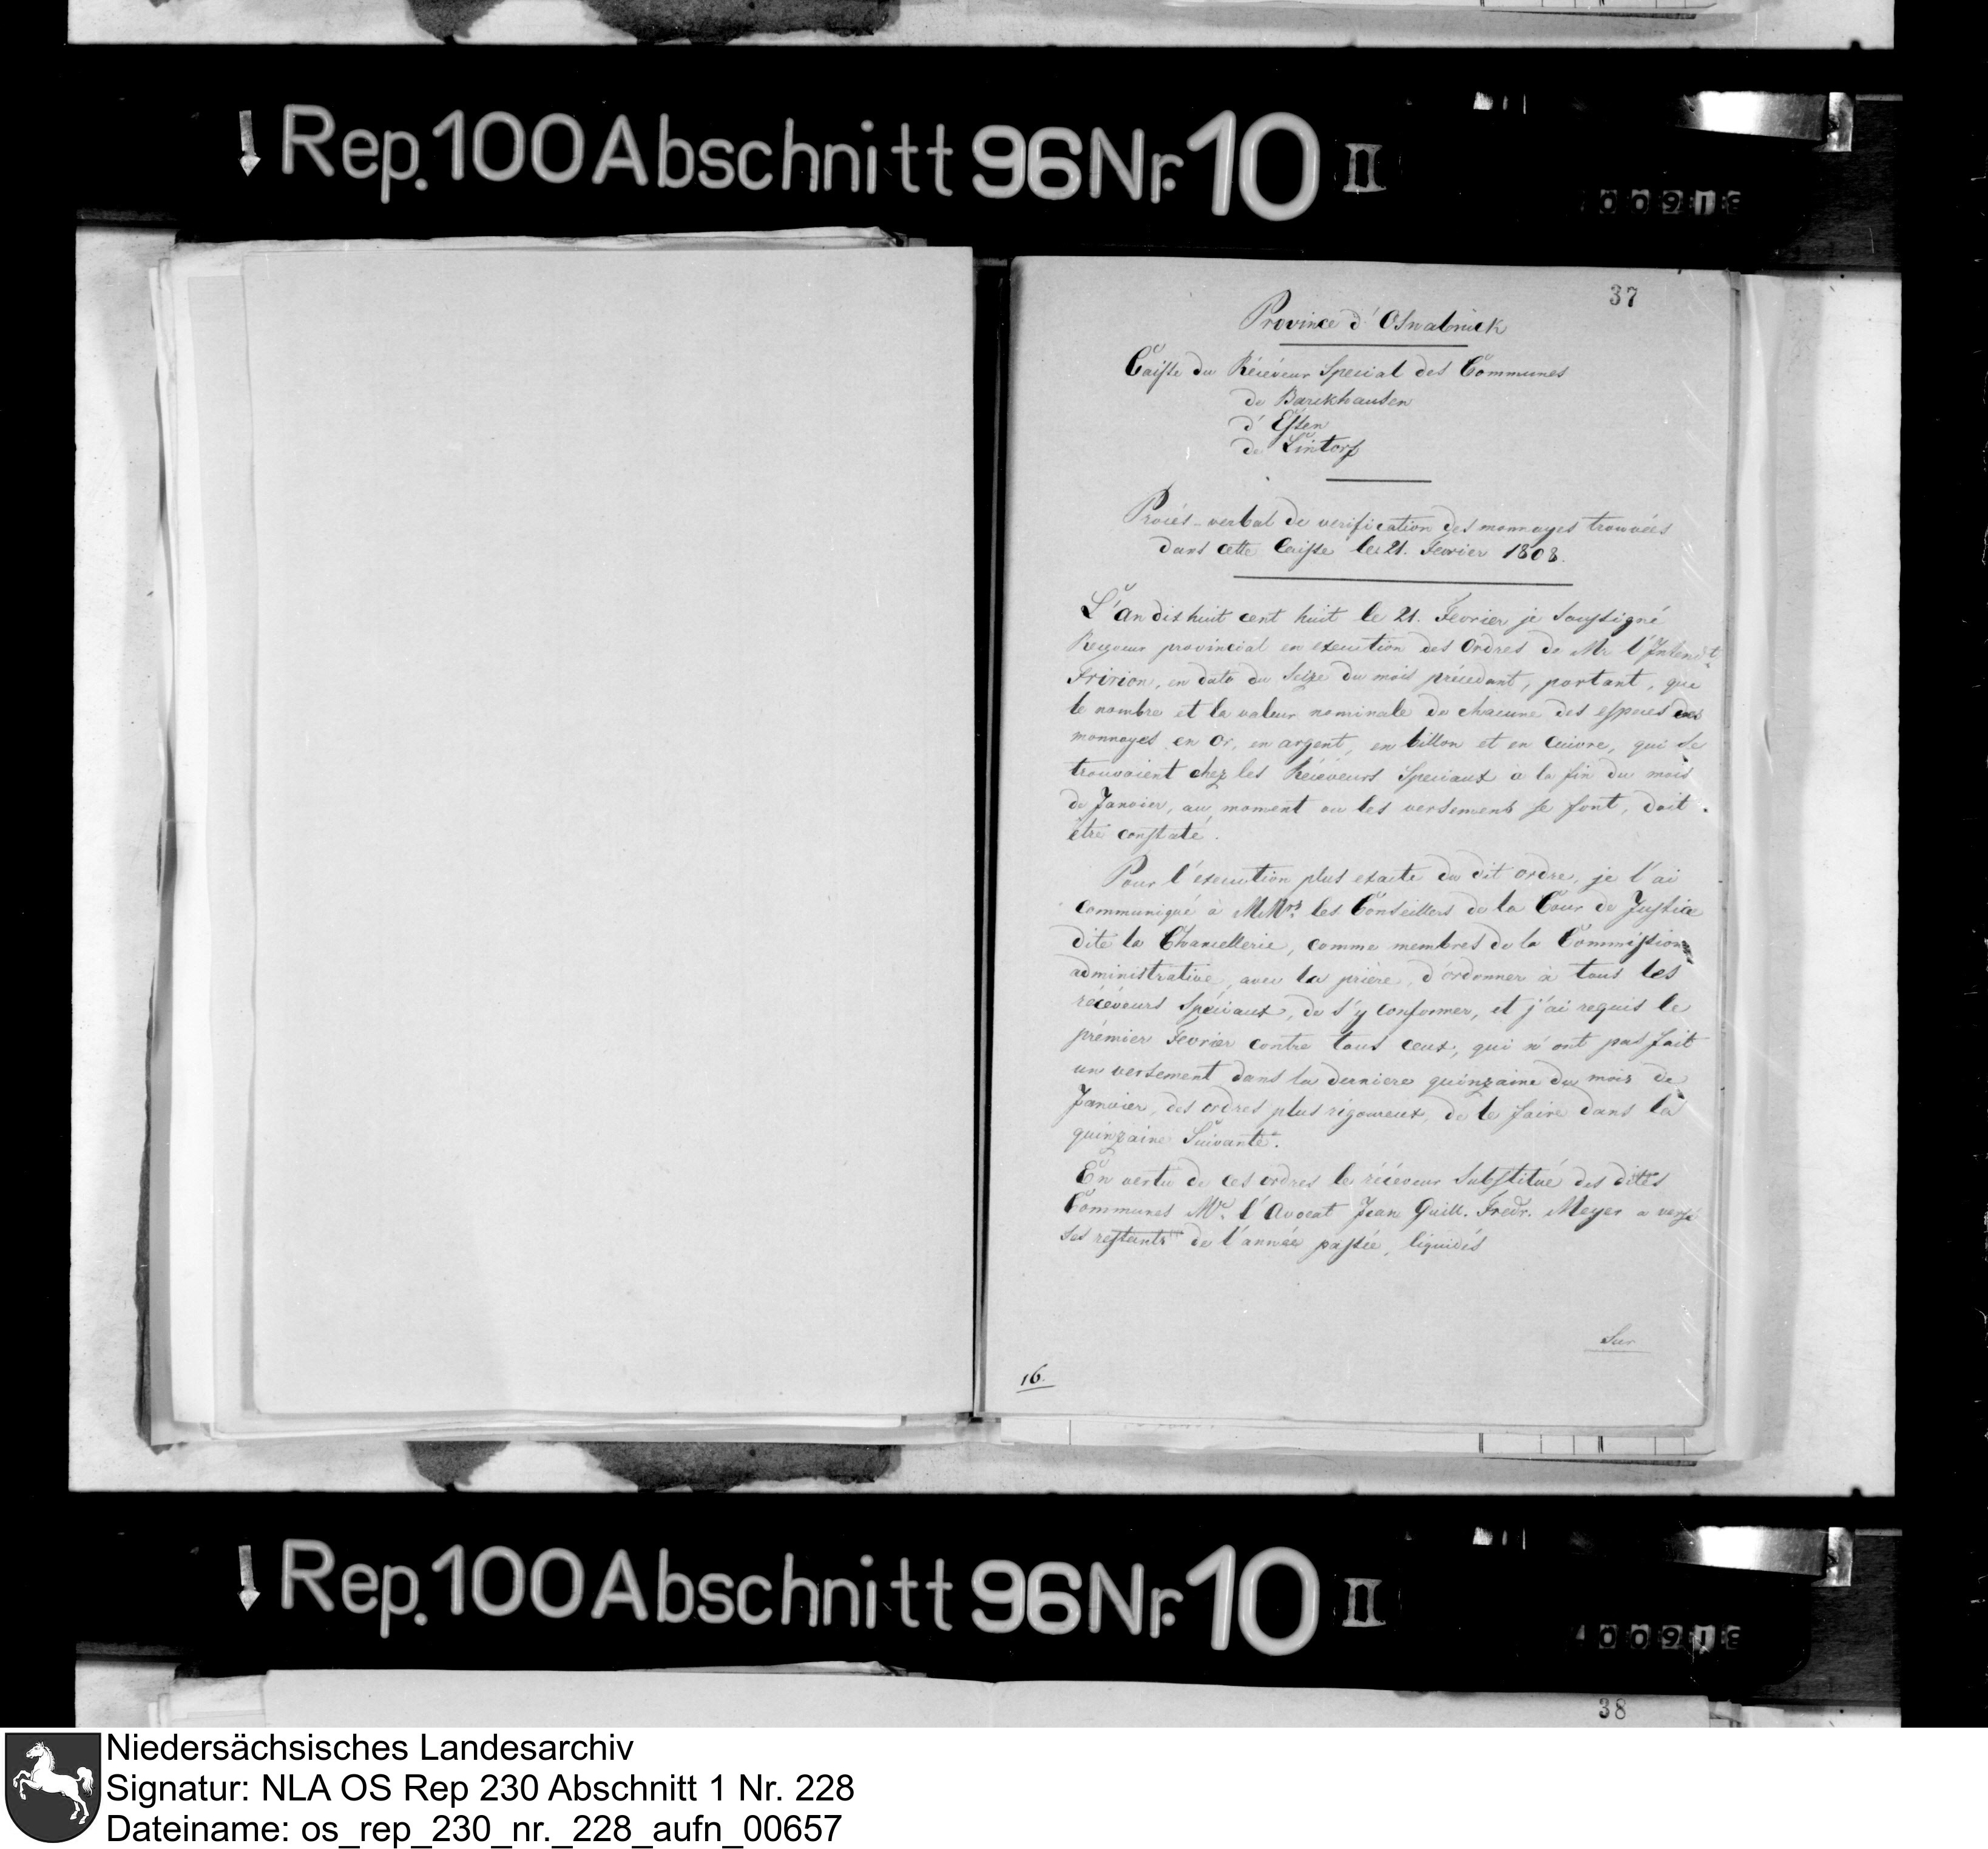 Rep. 100 Abschnitt 96 Nr. 10 II
00913
37
Province d'Osnabrück
Caisse du Récéveur Special des Communes
de Barckhausen
d'Essen
de Lintorf
Procés-verbal de verification des monnoyes trouvées
dans cette Caisse le 21. Fevrier 1808.
L'an dix huit cent huit le 21. Fevrier je soussigné
Reçeveur provincial en execution des Ordres de Mr l'Intendt
Fririon, en date du Seize du mois précedant, portant, que
le nombre et la valeur nominale de chacune des especes des
monnoyes en Or, en argent, en billon et en Cuivre, qui se
trouvoient chez les Récéveurs Speciaux à la fin du mois
de Janvier, au moment ou les versements se font, doit
être constaté.
Pour l'execution plus exacte du dit ordre, je l'ai
communiqué à MMrs. les Conseillers de la Cour de Justice
dite la Chancellerie, comme membres de la Commission
administrative, avec la prière, d'ordonner à tous les
récéveurs Spéciaux, de s'y conformer, et j'ai requis le
prémier Fevrier contre tous ceux, qui n'ont pas fait
un versement dans la derniere quinzaine du mois de
Janvier, des ordres plus rigoureux, de le faire dans la
quinzaine Suivante.
En vertu de ces ordres le récéveur Substitué des dites
Communes Mr. l'Avocat Jean Guill. Fredr. Meyer a versé
ses restants de l'année passée, liquidés
Sur
16.
Rep. 100 Abschnitt 96 Nr. 10 II
00913
38
Niedersächsisches Landesarchiv
Signatur: NLA OS Rep 230 Abschnitt 1 Nr. 228
Dateiname: os_rep_230_nr._228_aufn_00657